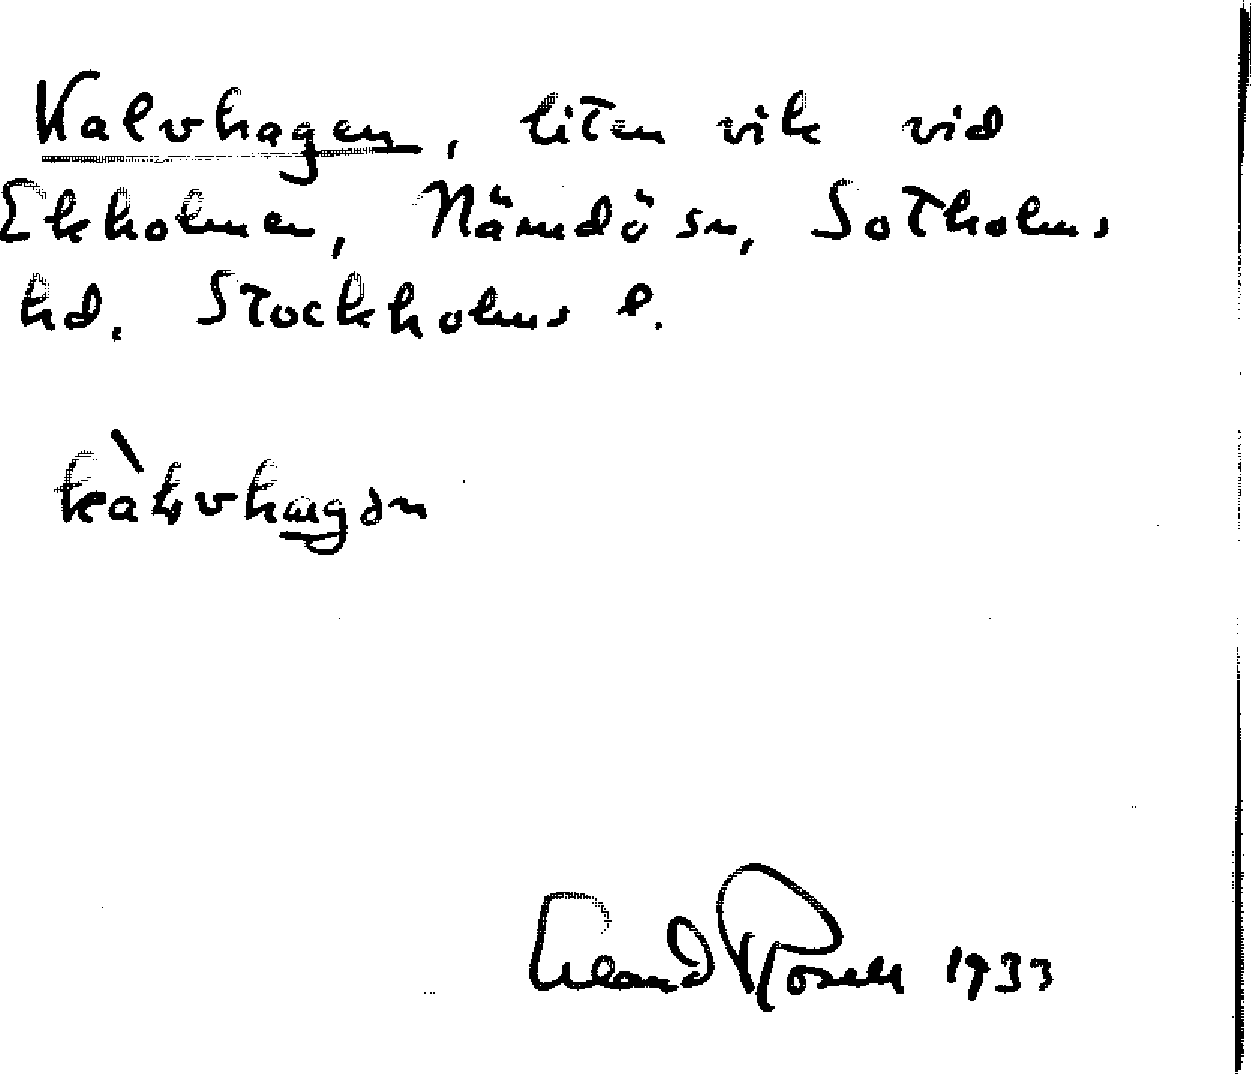 Kalvhagen, liten vik vid
Ekholmen, Nämdö sn, Sotholms
hd. Stockholms l.
Erland Rosell 1933